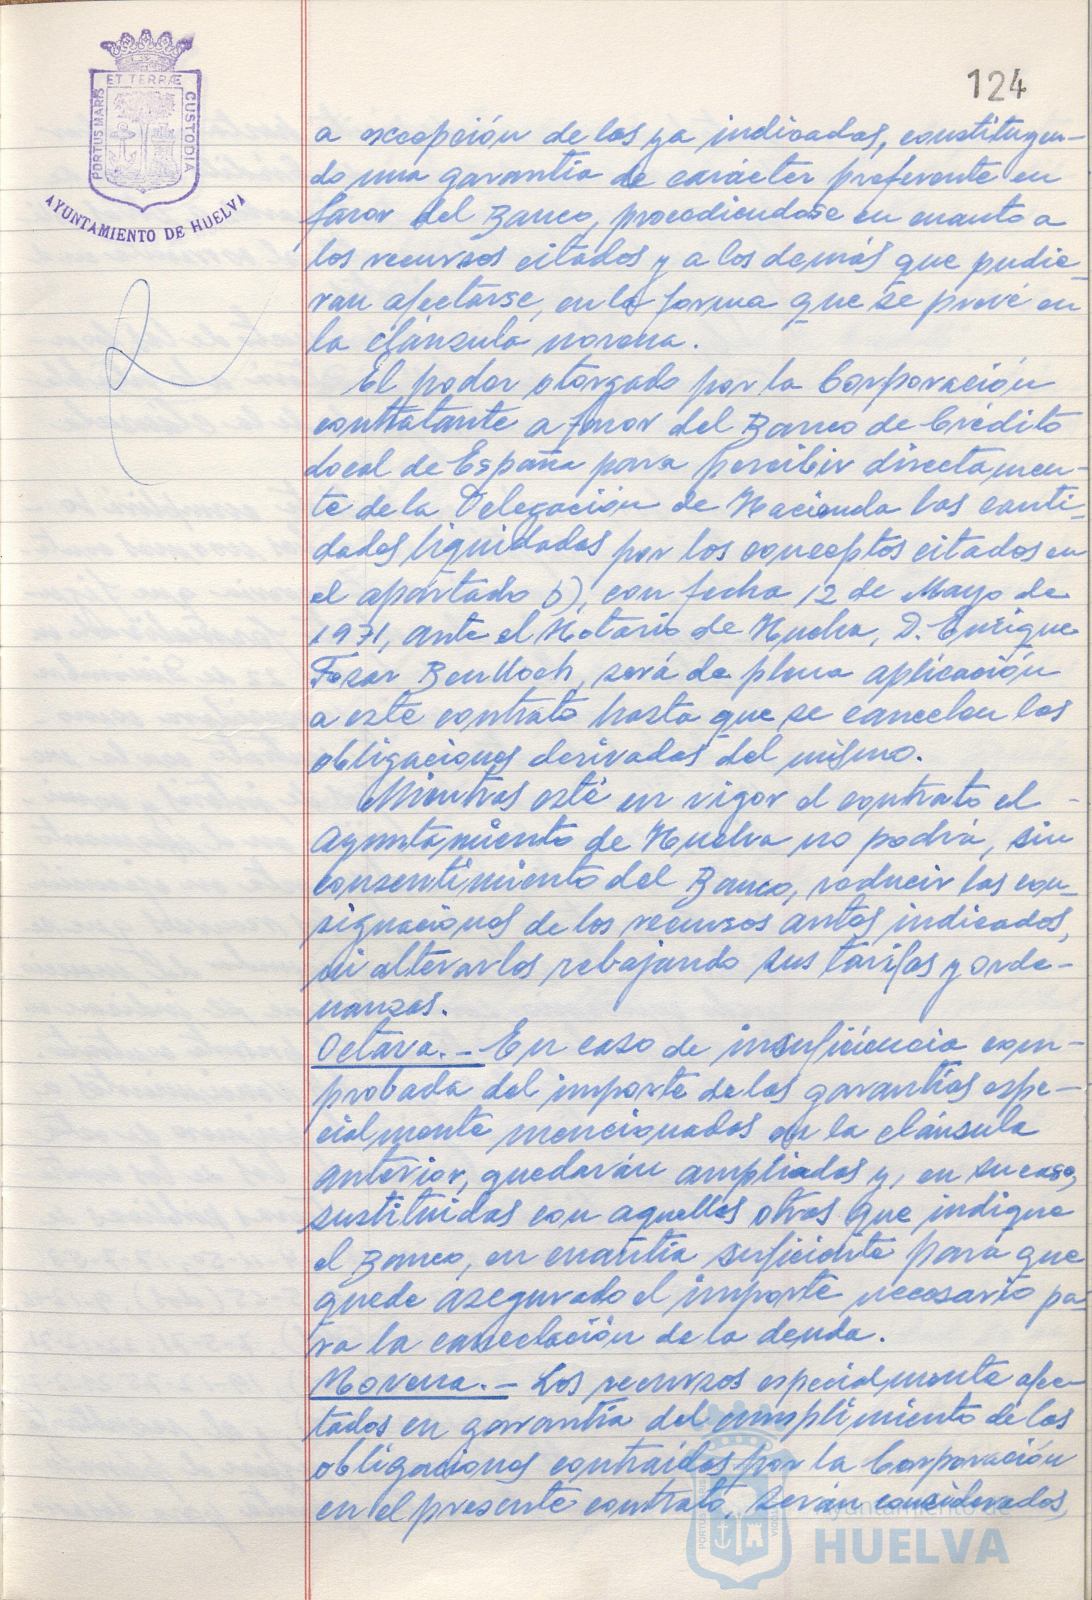 124
ET TERRÆ
PORTUS MARIS
CUSTODIA
AYUNTAMIENTO DE HUELVA
a excepción de las ya indicadas, constituyen-
do una garantía de carácter preferente en
favor del Banco, procediendose en cuanto a
los recursos citados y a los demás que pudie-
ran afectarse, en la forma que se prevé en
la cláusula novena.
El poder otorgado por la Corporación
contratante a favor del Banco de Crédito
Local de España para percibir directamen-
te de la Delegación de Hacienda las canti-
dades liquidadas por los conceptos citados en
el apartado b), con fecha 12 de Mayo de
1971, ante el Notario de Huelva, D. Enrique
Fosar Benlloch, será de plena aplicación
a este contrato hasta que se cancelen las
obligaciones derivadas del mismo.
Mientras esté en vigor el contrato el
Ayuntamiento de Huelva no podrá, sin
consentimiento del Banco, reducir las con-
signaciones de los recursos antes indicados,
ni alterarlos rebajando sus tarifas y orde-
nanzas.
Octava.- En caso de insuficiencia com-
probada del importe de las garantías espe-
cialmente mencionadas en la cláusula
anterior, quedarán ampliadas y, en su caso,
sustituidas con aquellas otras que indique
el Banco, en cuantía suficiente para que
quede asegurado el importe necesario pa-
ra la cancelación de la deuda.
Novena.- Los recursos especialmente afec-
tados en garantía del cumplimiento de las
obligaciones contraídas por la Corporación
en el presente contrato, serán considerados,
Ayuntamiento de
HUELVA